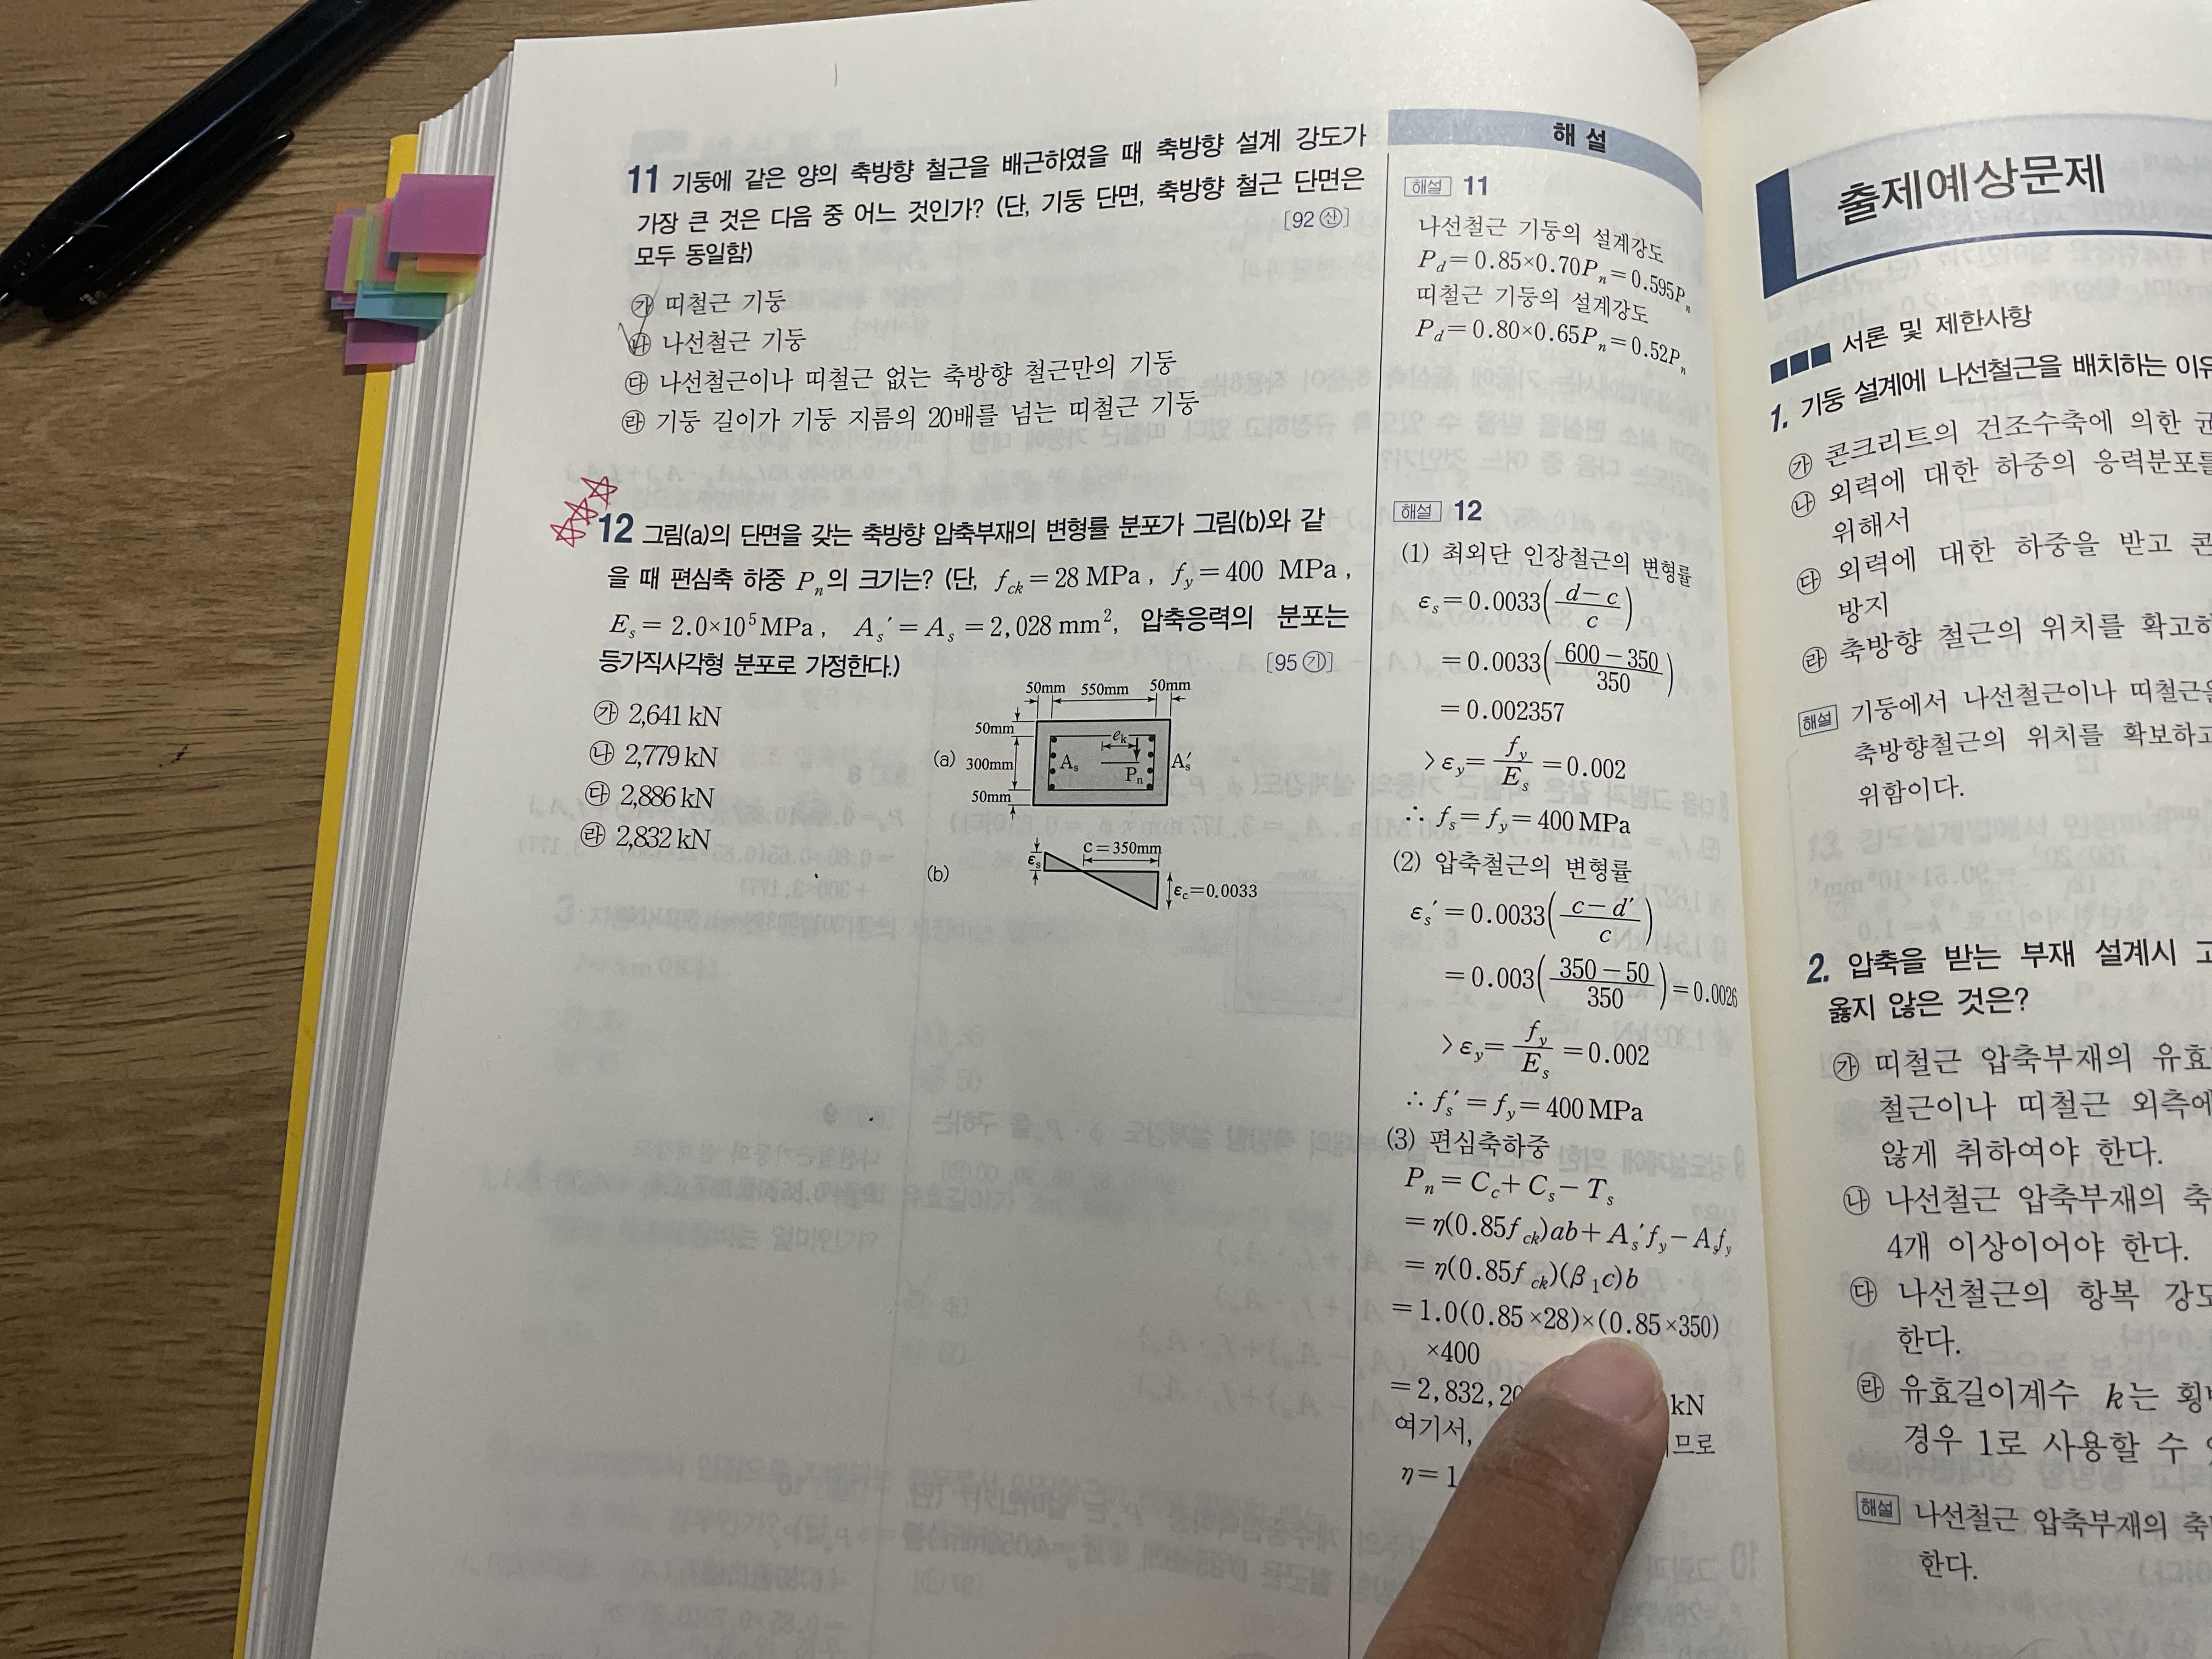 11 기둥에 같은 양의 축방향 철근을 배근하였을 때 축방향 설계 강도가
가장 큰 것은 다음 중 어느 것인가? (단, 기둥 단면, 축방향 철근 단면은
모두 동일함) [92 ㉮산]
㉮ 띠철근 기둥
㉯ 나선철근 기둥
㉰ 나선철근이나 띠철근 없는 축방향 철근만의 기둥
㉱ 기둥 길이가 기둥 지름의 20배를 넘는 띠철근 기둥
12 그림(a)의 단면을 갖는 축방향 압축부재의 변형률 분포가 그림(b)와 같
을 때 편심축 하중 Pn의 크기는? (단, fck = 28 MPa, fy = 400 MPa,
Es = 2.0×10⁵ MPa, As′ = As = 2,028 mm², 압축응력의 분포는
등가직사각형 분포로 가정한다.) [95 기]
㉮ 2,641 kN
㉯ 2,779 kN
㉰ 2,886 kN
㉱ 2,832 kN
50mm 550mm 50mm
50mm
(a) 300mm
50mm
As ek Pn As′
(b) εs c = 350mm
εc = 0.0033
해 설
해설 11
나선철근 기둥의 설계강도
Pd = 0.85×0.70Pn = 0.595Pn
띠철근 기둥의 설계강도
Pd = 0.80×0.65Pn = 0.52Pn
해설 12
(1) 최외단 인장철근의 변형률
εs = 0.0033((d−c)/c)
= 0.0033((600−350)/350)
= 0.002357
> εy = fy/Es = 0.002
∴ fs = fy = 400 MPa
(2) 압축철근의 변형률
εs′ = 0.0033((c−d′)/c)
= 0.003((350−50)/350) = 0.0026
> εy = fy/Es = 0.002
∴ fs′ = fy = 400 MPa
(3) 편심축하중
Pn = Cc + Cs − Ts
= η(0.85fck)ab + As′fy − Asfy
= η(0.85fck)(β1c)b
= 1.0(0.85×28)×(0.85×350)
×400
= 2,832,20 kN
여기서, 므로
η = 1
출제예상문제
서론 및 제한사항
1. 기둥 설계에 나선철근을 배치하는 이유
㉮ 콘크리트의 건조수축에 의한 균
㉯ 외력에 대한 하중의 응력분포를
위해서
㉰ 외력에 대한 하중을 받고 콘
방지
㉱ 축방향 철근의 위치를 확고히
해설 기둥에서 나선철근이나 띠철근을
축방향철근의 위치를 확보하고
위함이다.
2. 압축을 받는 부재 설계시 고
옳지 않은 것은?
㉮ 띠철근 압축부재의 유효
철근이나 띠철근 외측에
않게 취하여야 한다.
㉯ 나선철근 압축부재의 축
4개 이상이어야 한다.
㉰ 나선철근의 항복 강도
한다.
㉱ 유효길이계수 k는 횡
경우 1로 사용할 수
해설 나선철근 압축부재의 축
한다.